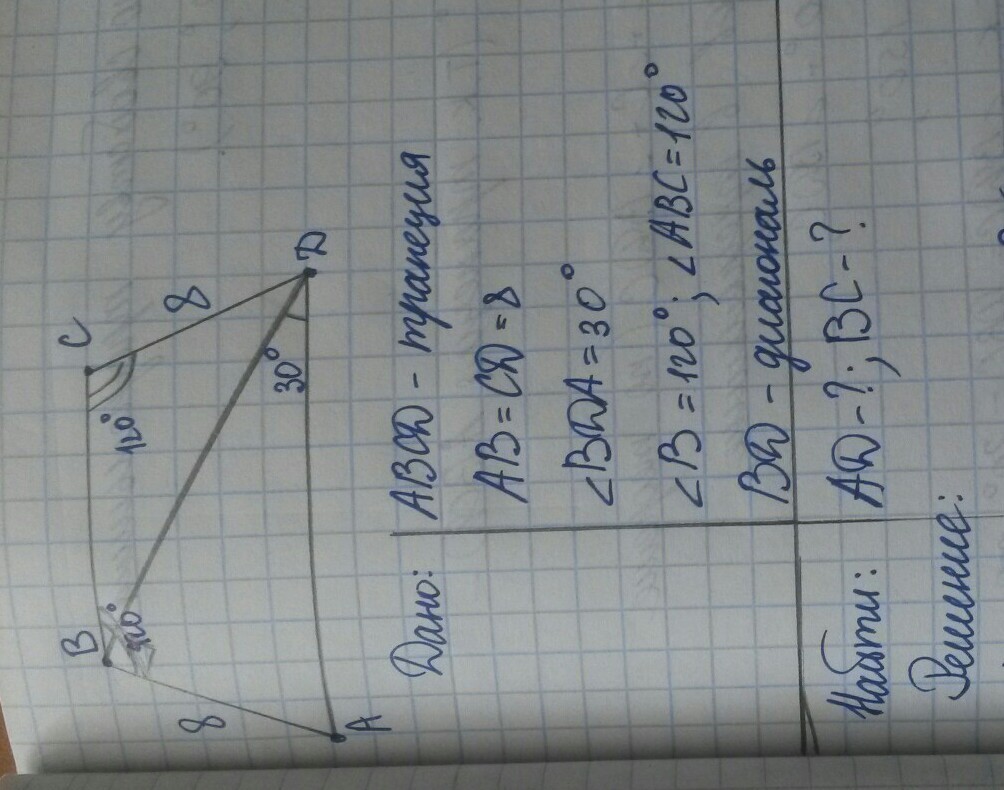 B
C
120°
120°
8
8
30°
A
D
Дано: ABCD - трапеция
AB = CD = 8
∠BDA = 30°
∠B = 120°; ∠ABC = 120°
BD - диагональ
Найти: AD - ?; BC - ?
Решение: